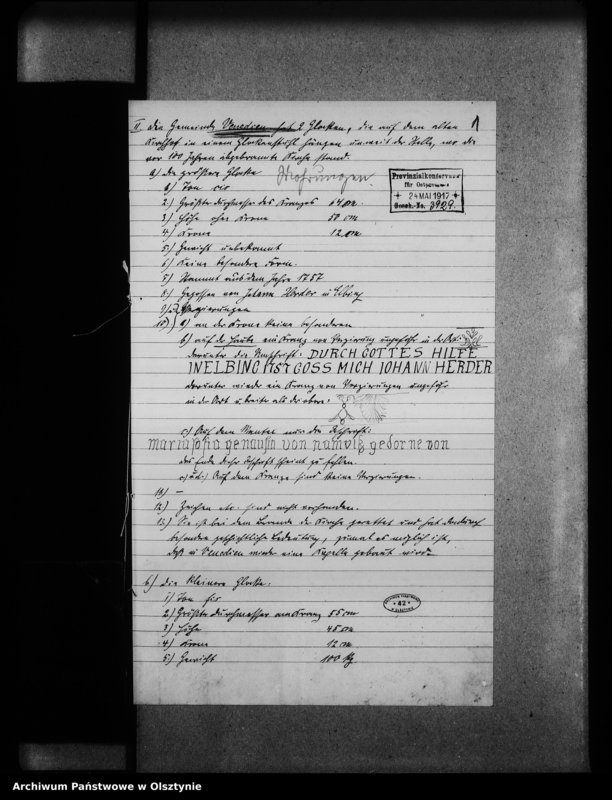 II. Die Gemeinde Venedien hat 2 Glocken, die auf dem alten
Kirchhof in einem Glockenstuhl hängen unweit der Stelle, wo die
vor 100 Jahren abgebrannte Kirche stand.
1
a) die größere Glocke
Mohrungen
Provinzialkonservator
für Ostpreussen
24 MAI 1917
Gesch.-No. 3929.
1) Ton cis
2) Größter Durchmesser des Kranzes 64 cm.
3) Höhe ohne Krone 50 cm
4) Krone 12 cm
5) Gewicht unbekannt
6) Keine besondere Form.
7) Stammt aus dem Jahre 1757
8) Gegossen von Johann Herder in Elbing
9) u. Verzierungen
10) a) an der Krone keine besonderen
b) auf der Haube ein Kranz von Verzierung ungefähr in der Art:
darunter die Umschrift: DURCH GOTTES HILFE
IN ELBING IST GOSS MICH JOHANN HERDER
darunter wieder ein Kranz von Verzierungen ungefähr
in der Art u. breite als die obere:
c) Auf dem Mantel nur die Inschrift:
maria sofia von geborne von
das Ende dieser Inschrift scheint zu fehlen.
Auf dem Kranze sind keine Verzierungen.
11) —
12) Zeichen etc. sind nicht vorhanden.
13) Sie ist bei dem Brande der Kirche gerettet und hat
besondere geschichtliche Bedeutung, zumal es möglich ist,
daß in Venedien wieder eine Kapelle gebaut wird.
b) die kleinere Glocke:
1) Ton fis
2) Größter Durchmesser am Kranz 55 cm
3) Höhe 45 cm
4) Krone 12 cm
5) Gewicht 100 kg
42
Archiwum Państwowe w Olsztynie